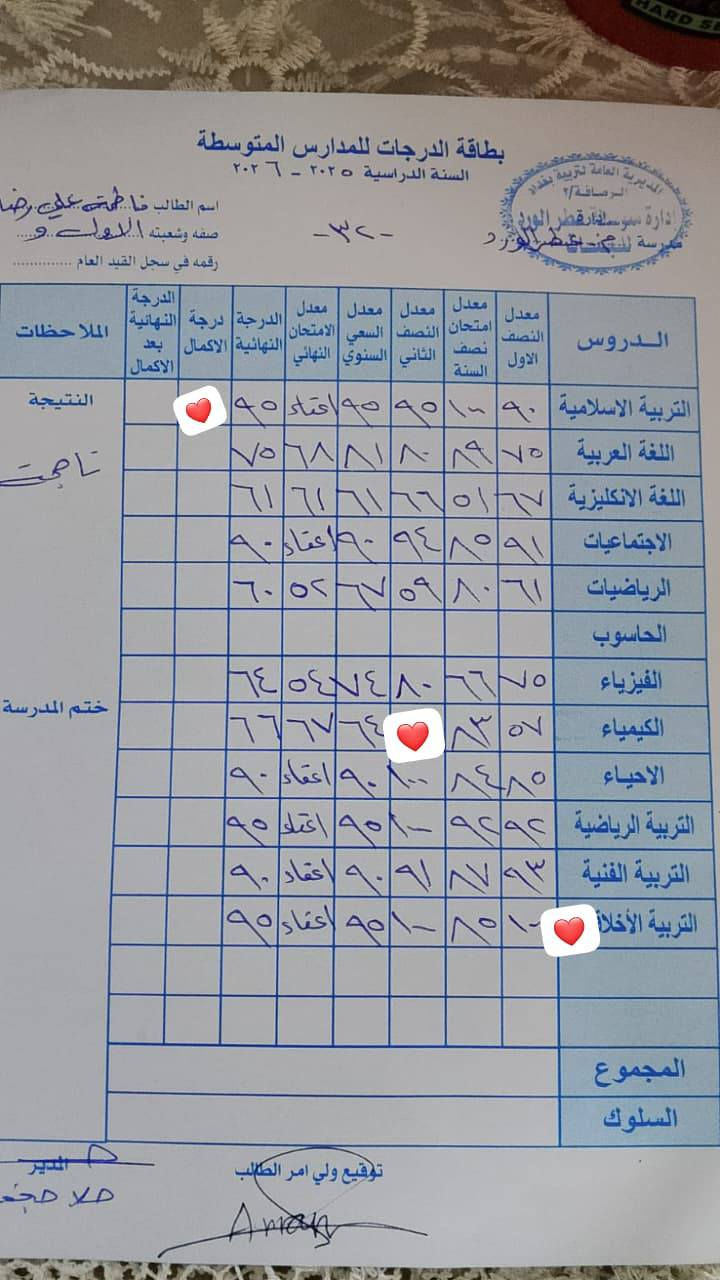 HARD
بطاقة الدرجات للمدارس المتوسطة
السنة الدراسية ٢٠٢٥ - ٢٠٢٦
المديرية العامة لتربية بغداد
الرصافة/٢
اسم الطالب فاطمة علي رضا
صفه وشعبته الاول و
-٣٢-
مدرسة م. عطر الورد
للبنات
رقمه في سجل القيد العام ..............
الـدروس معدل النصف الاول معدل امتحان نصف السنة معدل النصف الثاني معدل السعي السنوي معدل الامتحان النهائي الدرجة النهائية درجة الاكمال الدرجة النهائية بعد الاكمال الملاحظات
التربية الاسلامية ٩٠ ١٠٠ ٩٥ ٩٥ اعفاء ٩٥ النتيجة
اللغة العربية ٧٥ ٨٩ ٨٠ ٨١ ٦٨ ٧٥ ناجحة
اللغة الانكليزية ٦٧ ٥١ ٦٦ ٦١ ٦١ ٦١
الاجتماعيات ٩١ ٨٥ ٩٤ ٩٠ اعفاء ٩٠
الرياضيات ٦١ ٨٠ ٥٩ ٦٧ ٥٢ ٦٠
الحاسوب
الفيزياء ٧٥ ٦٦ ٨٠ ٧٤ ٥٤ ٦٤ ختم المدرسة
الكيمياء ٥٧ ٨٣ ٦٤ ٦٧ ٦٦
الاحياء ٨٥ ٨٤ ١٠٠ ٩٠ اعفاء ٩٠
التربية الرياضية ٩٢ ٩٢ ١٠٠ ٩٥ اعفاء ٩٥
التربية الفنية ٩٣ ٨٧ ٩١ ٩٠ اعفاء ٩٠
التربية الأخلا ١٠٠ ٨٥ ١٠٠ ٩٥ اعفاء ٩٥
المجموع
السلوك
توقيع ولي امر الطالب
المدير